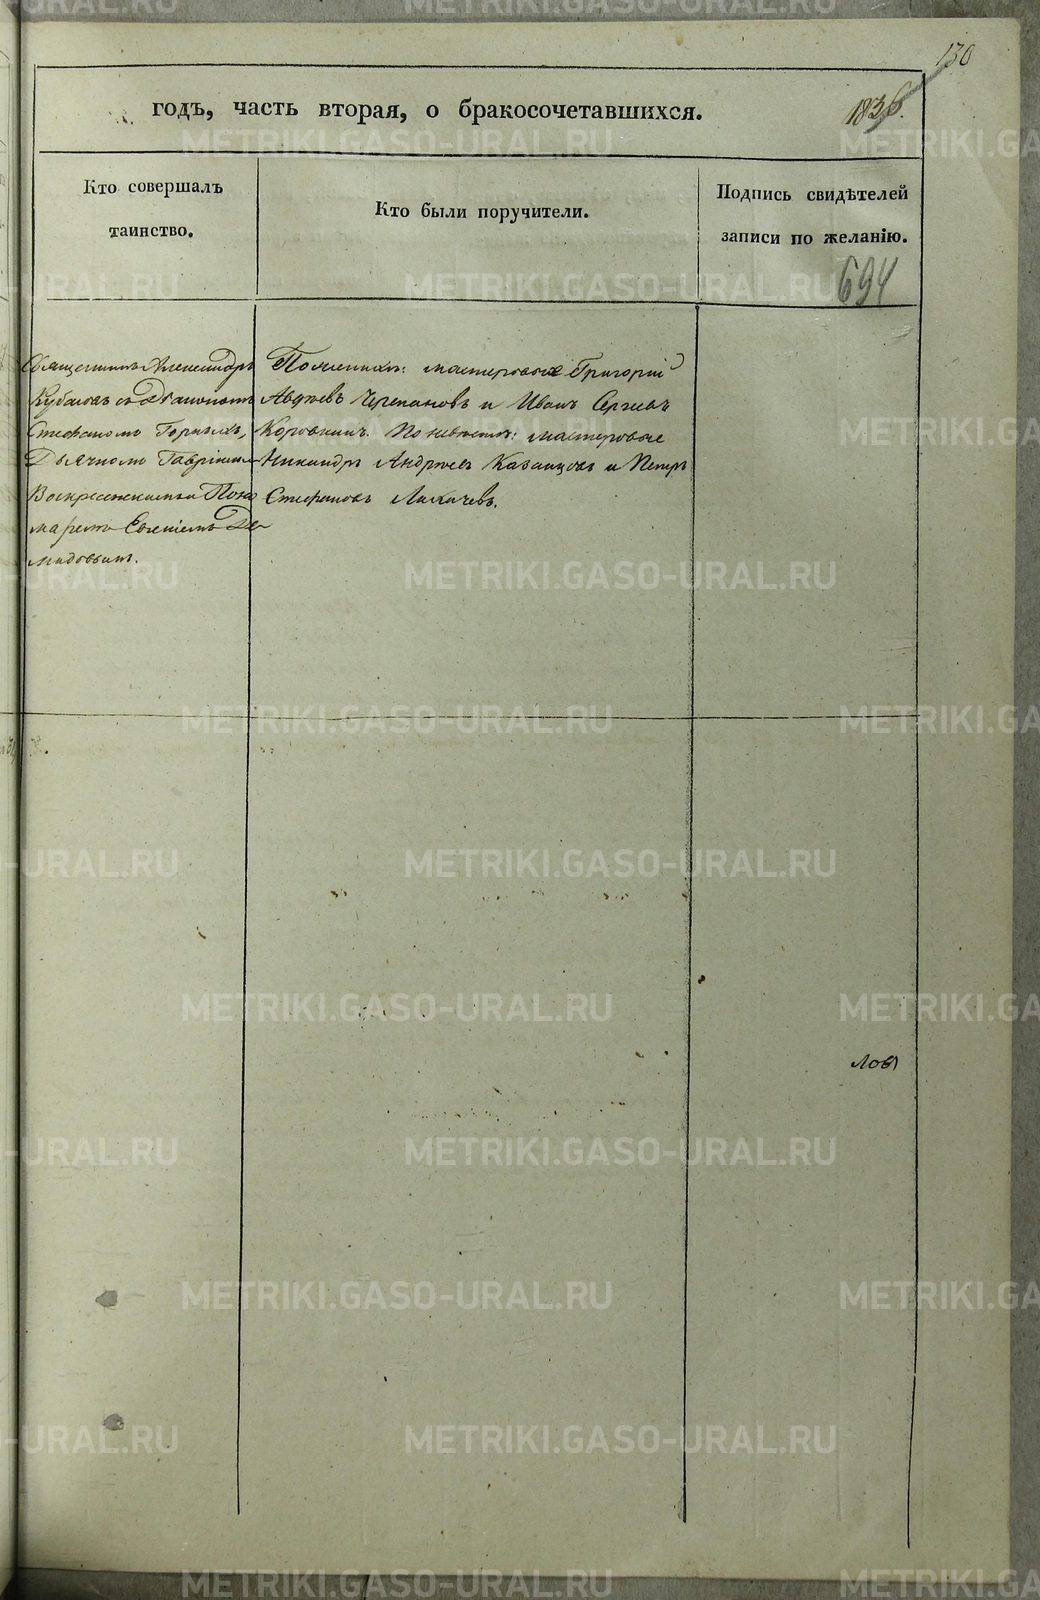 130
годъ, часть вторая, о бракосочетавшихся. 1836.
Кто совершалъ
таинство.
Кто были поручители.
Подпись свидѣтелей
записи по желанію.
694
Священникъ Александръ
Кубасовъ съ Діакономъ
Стефаномъ
Дьячкомъ
Воскресенскимъ и Поно
маремъ Евгеніемъ Де
мидовымъ.
По женихѣ: мастеровые Григорій
Авдѣевъ Черепановъ и Иванъ Сергѣевъ
Коровкинъ. По невѣстѣ: мастеровые
Никандръ Андреевъ Казанцовъ и Петръ
Стефановъ Лихачевъ.
METRIKI.GASO-URAL.RU